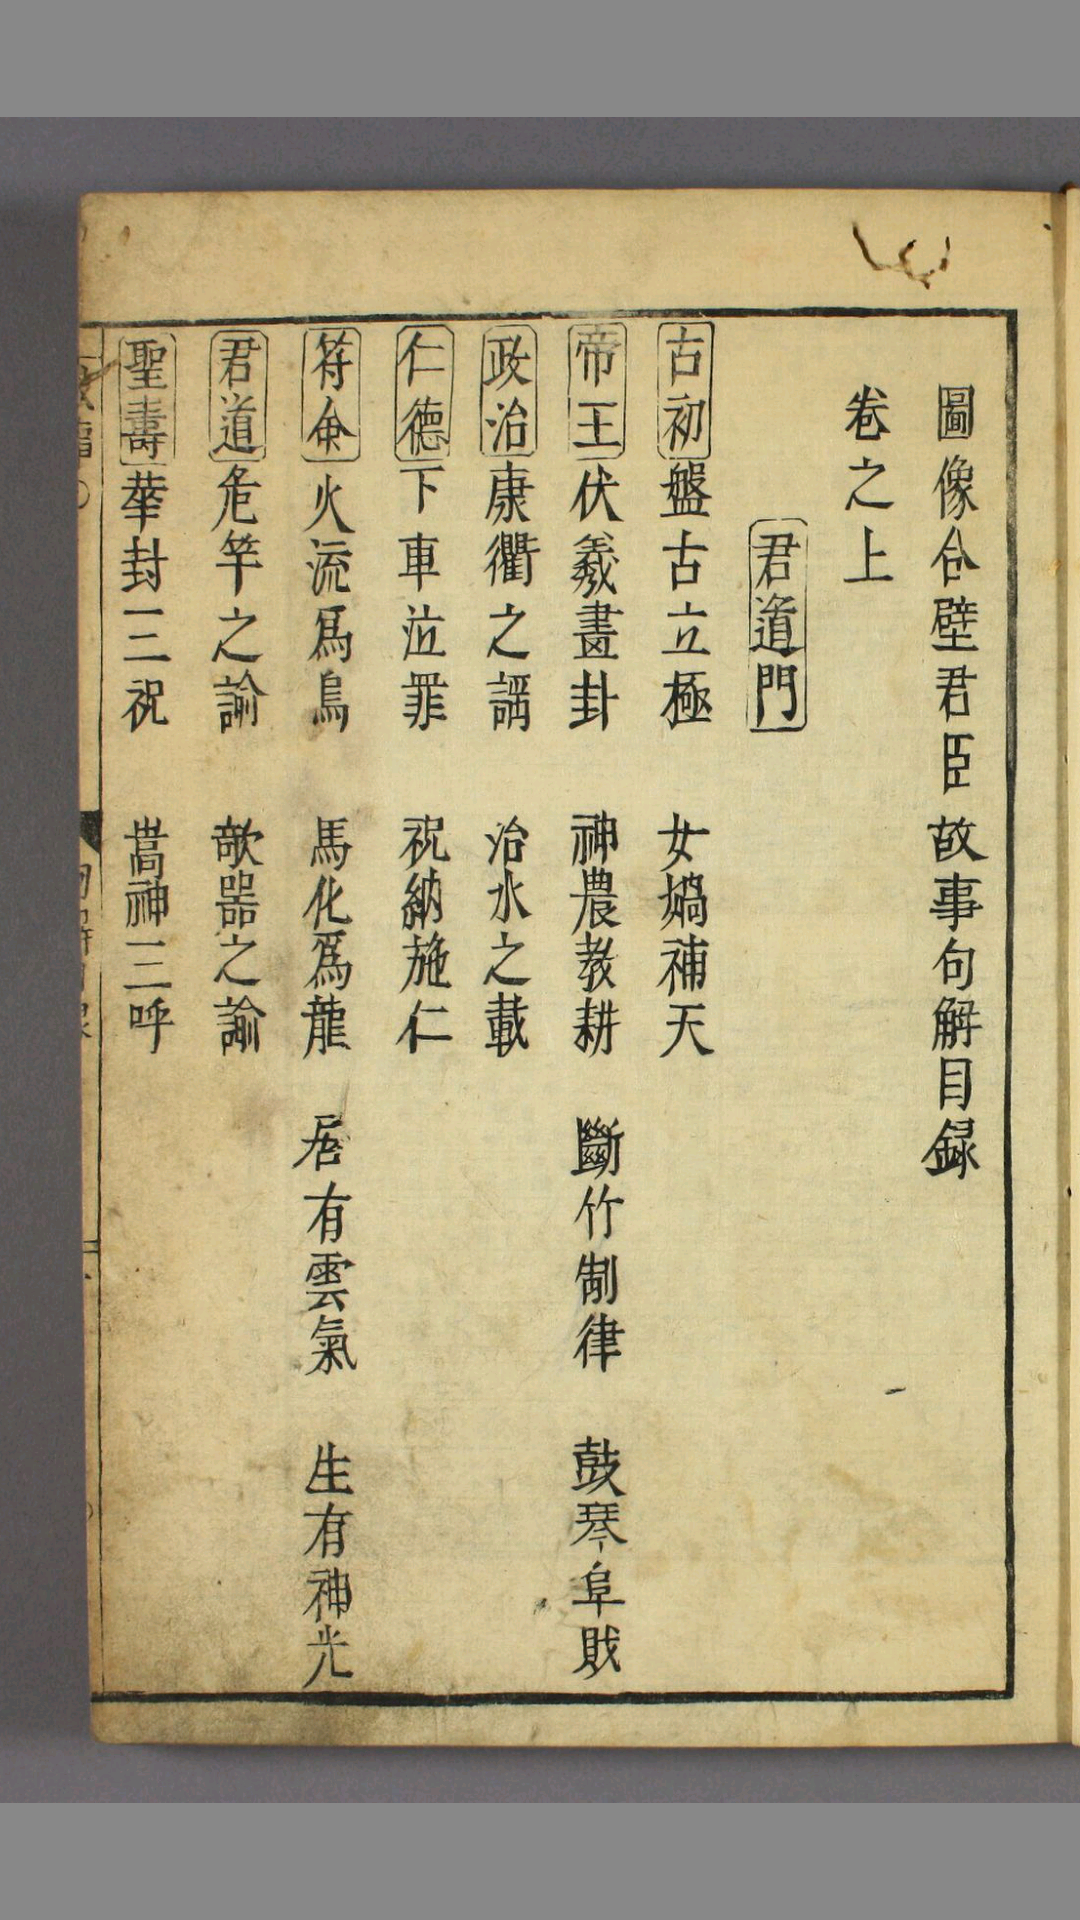 圖像合璧君臣故事句解目録
卷之上
君道門
古初 盤古立極 女媧補天
帝王 伏羲畫卦 神農教耕 斷竹制律 鼓琴阜財
政治 康衢之謡 治水之載
仁德 下車泣罪 祝納施仁
符命 火流爲烏 馬化爲龍 居有雲氣 生有神光
君道 危竿之諭 欹器之諭
聖壽 華封三祝 嵩神三呼